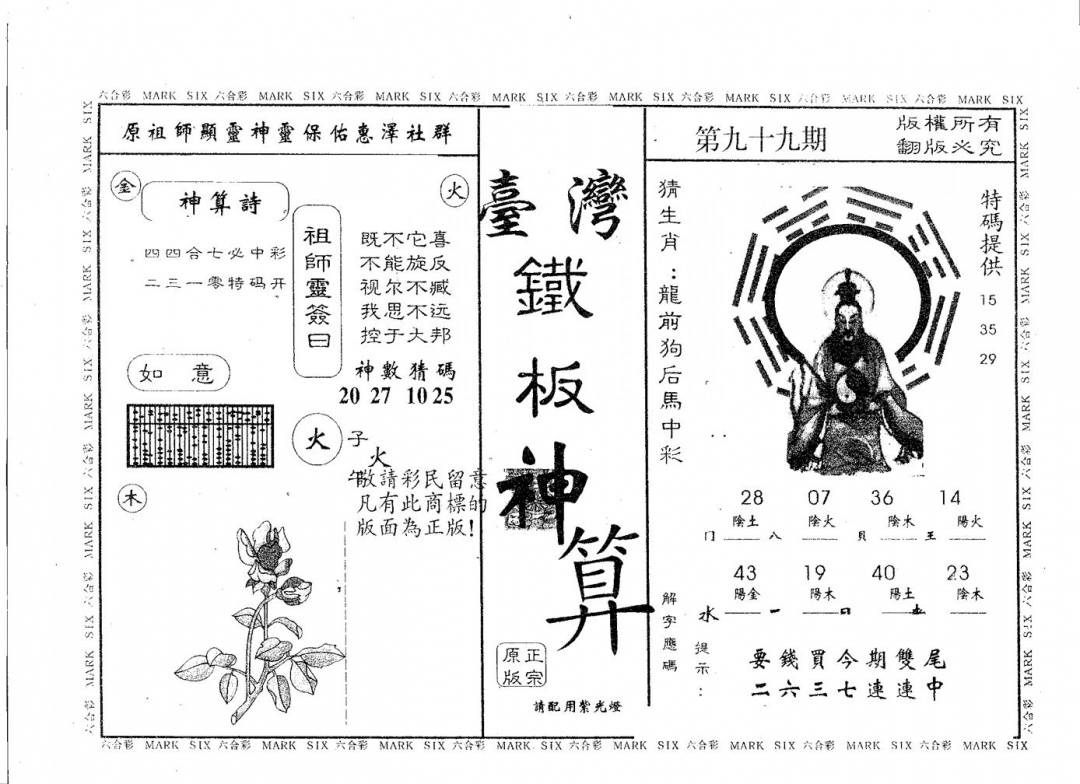 六合彩 MARK SIX 六合彩 MARK SIX 六合彩 MARK SIX 六合彩 MARK SIX 六合彩 MARK SIX 六合彩 MARK SIX 六合彩 MARK SIX 六合彩 MARK SIX
原祖師顯靈神靈保佑惠澤社群
金
神算詩
火
四四合七必中彩
二三一零特码开
祖師靈簽曰
既不它喜
不能旋反
视尔不臧
我思不远
控于大邦
神數猜碼
20 27 10 25
如意
火
子
火
午
敬請彩民留意
凡有此商標的
版面為正版!
木
臺灣
鐵
板
神
算
正宗
原版
請配用紫光燈
第九十九期
版權所有
翻版必究
猜生肖：龍前狗后馬中彩
特碼提供
15
35
29
28 07 36 14
陰土 陰火 陰木 陽火
八 貝 王
43 19 40 23
陽金 陽木 陽土 陰木
水 一 口
解字應碼
提示：
要錢買今期雙尾
二六三七連連中
六合彩 MARK SIX 六合彩 MARK SIX 六合彩 MARK SIX 六合彩 MARK SIX 六合彩 MARK SIX 六合彩 MARK SIX 六合彩 MARK SIX 六合彩 MARK SIX